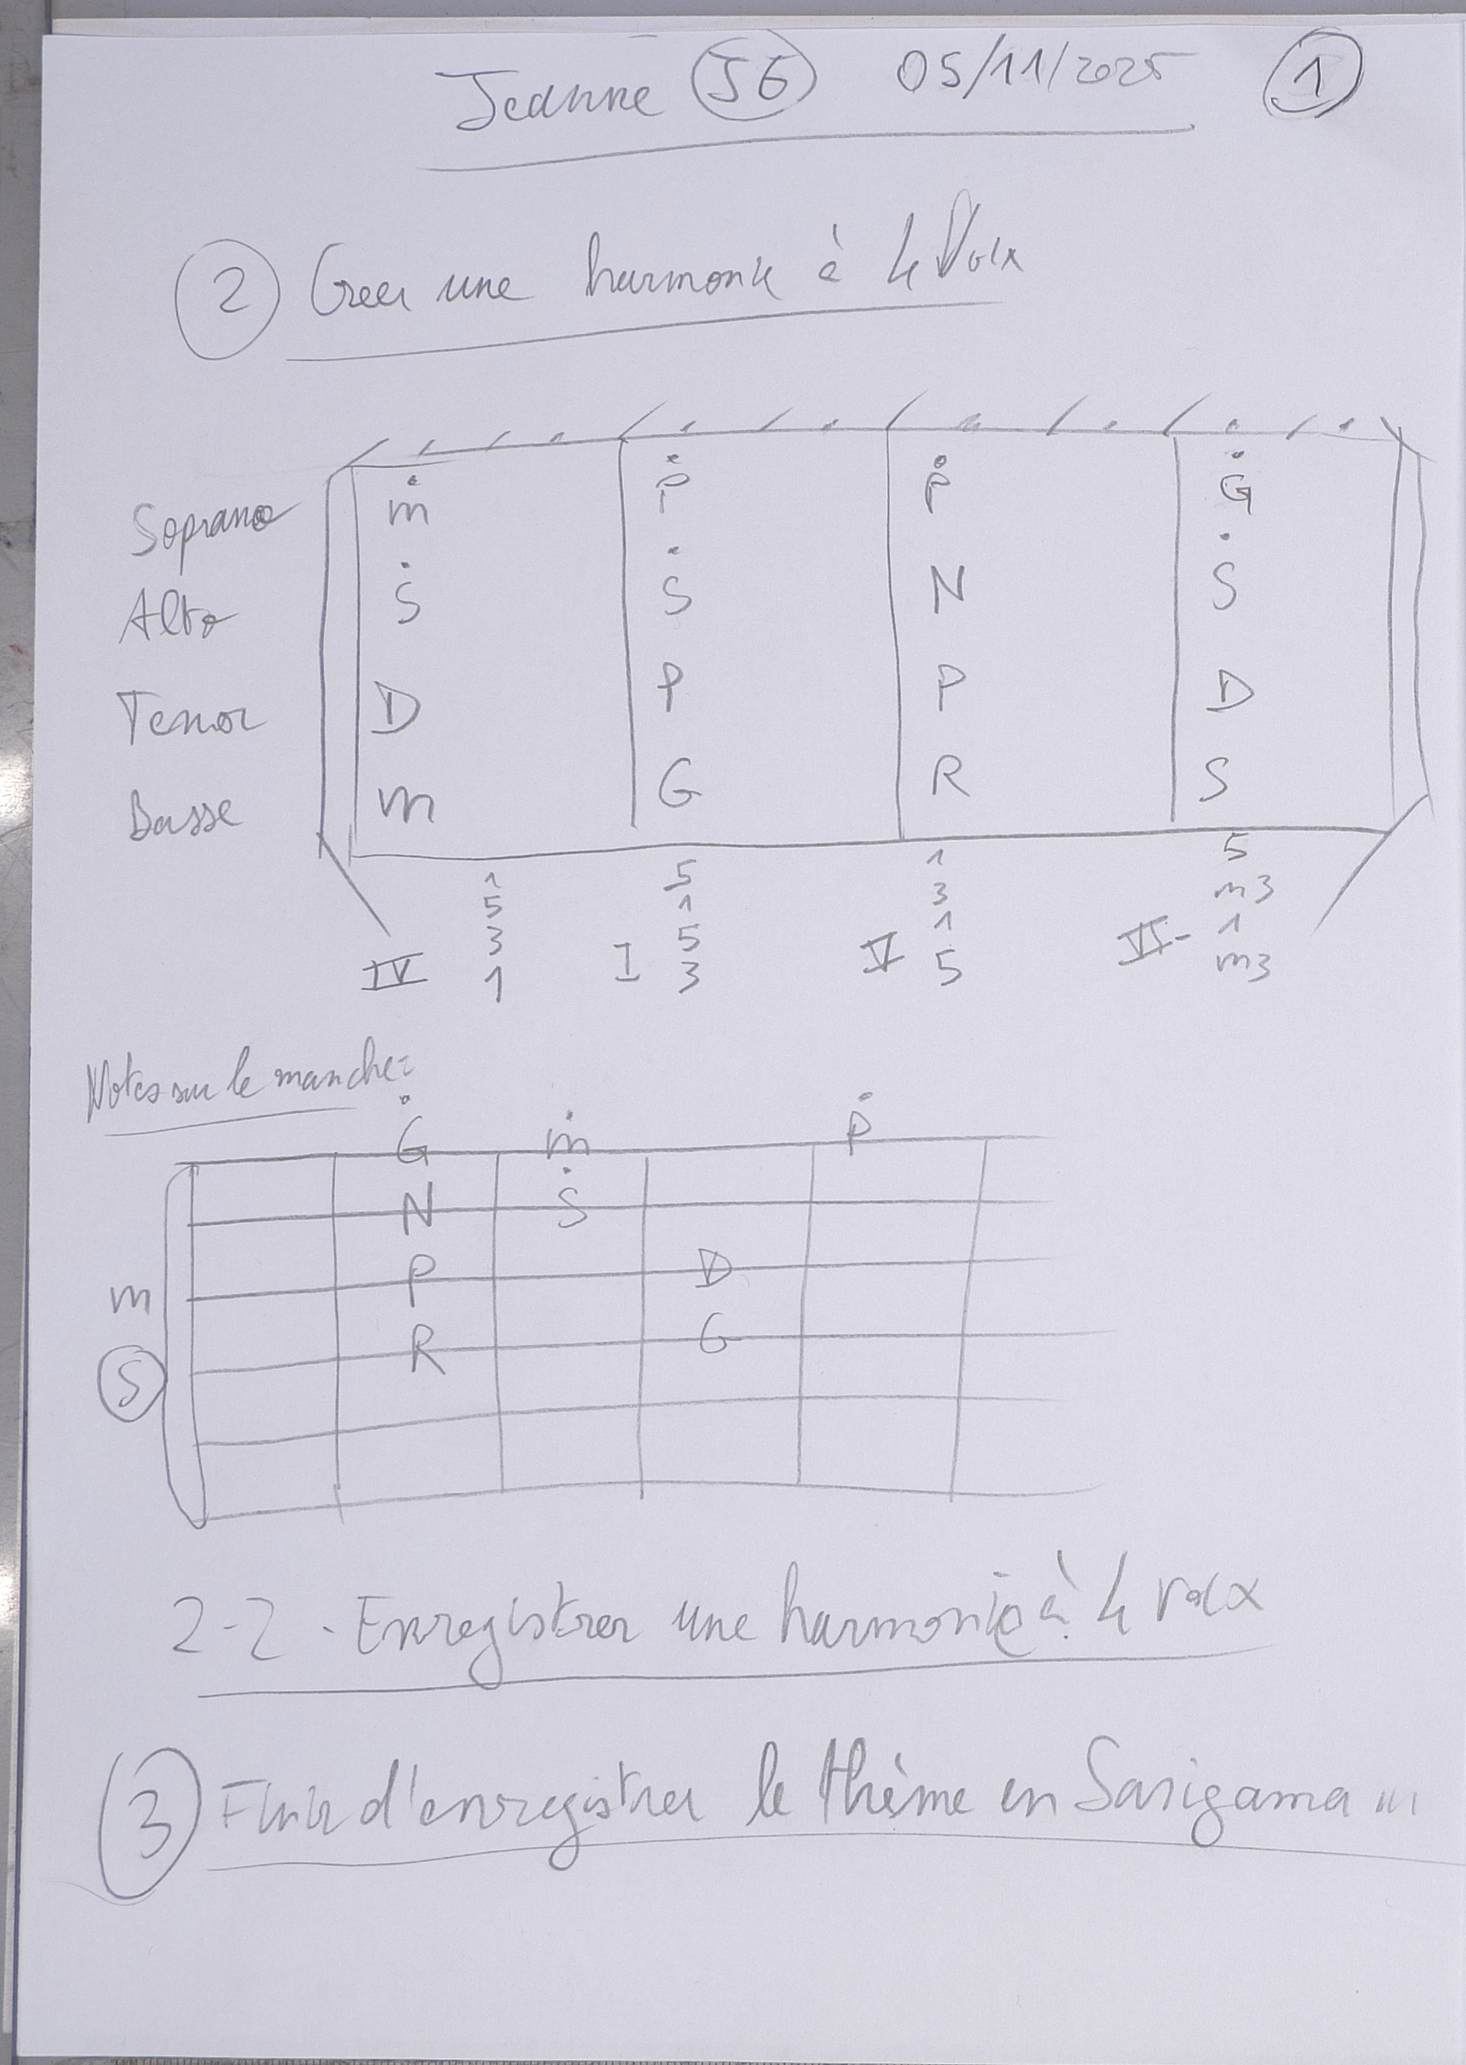 Jeanne J6 05/11/2025 1
2 Créer une harmonie à la Voix
Soprano ṁ Ṗ Ṗ Ġ
Alto Ṡ Ṡ N Ṡ
Tenor D P P D
Basse m G R S
1 5 1 5
5 1 3 m3
3 5 1 1
IV 1 I 3 V 5 VI- m3
Notes sur le manche:
Ġ ṁ Ṗ
N Ṡ
m P D
S R G
2-2 - Enregistrer une harmonie à la voix
3 Finir d'enregistrer le thème en Sarigama ...